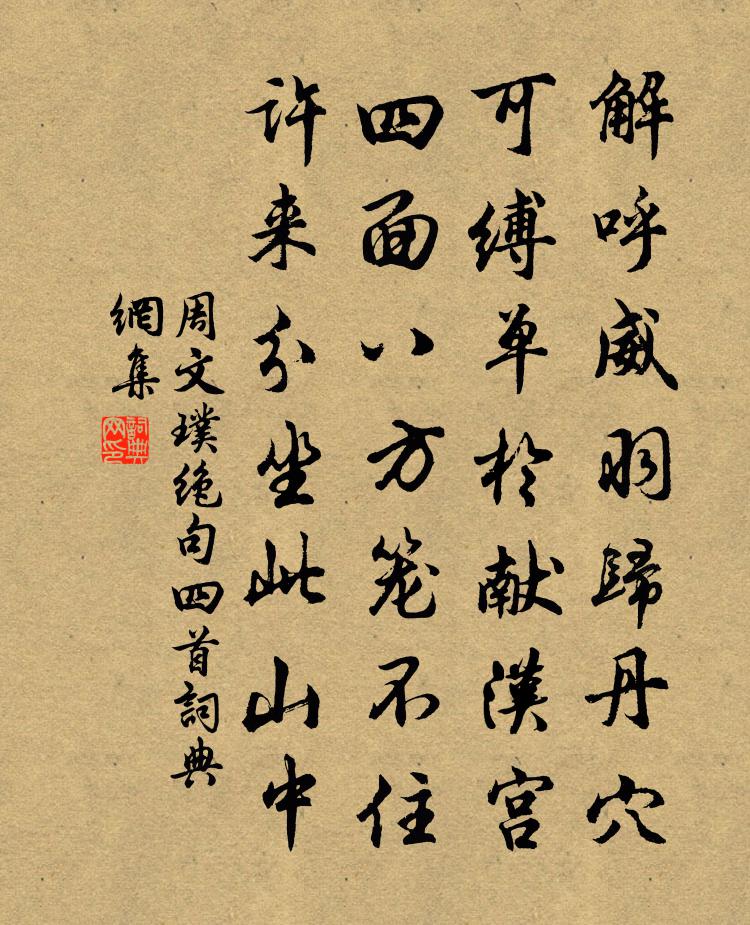 解呼威羽歸丹穴
可縛单於献漢宫
四面八方笼不住
许来分坐此山中
周文璞絶句四首詞典
網集
詞典
网印